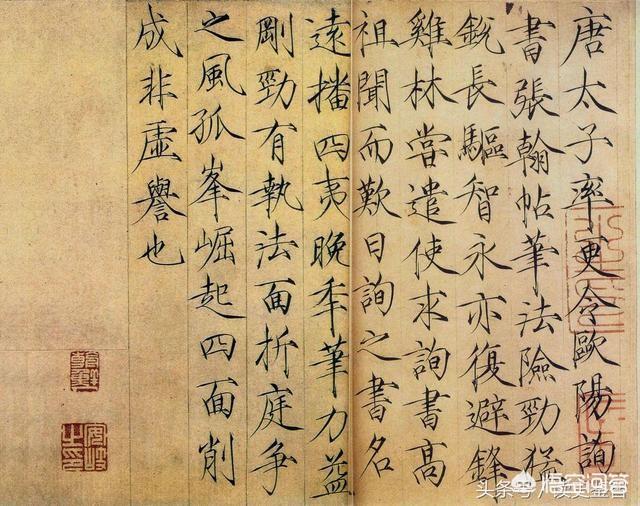 唐太子率更令歐陽詢
書張翰帖筆法險勁猛
銳長驅智永亦復避鋒
雞林嘗遣使求詢書高
祖聞而歎曰詢之書名
遠播四夷晚秊筆力益
剛勁有執法面折庭争
之風孤峯崛起四面削
成非虛譽也
安岐之印
悟空问答